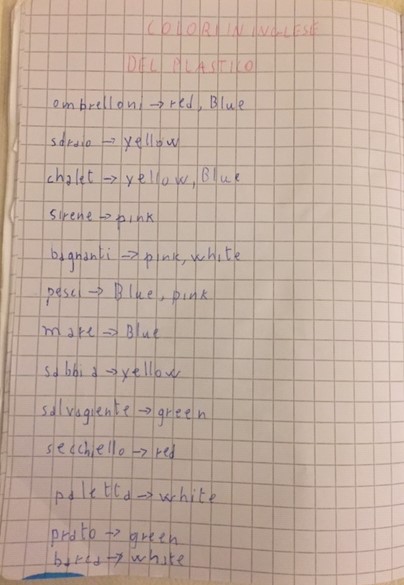 COLORI IN INGLESE
DEL PLASTICO
ombrelloni → red, Blue
sdraio → yellow
chalet → yellow, Blue
sirene → pink
bagnanti → pink, white
pesci → Blue, pink
mare → Blue
sabbia → yellow
salvagente → green
secchiello → red
paletta → white
prato → green
barca → white